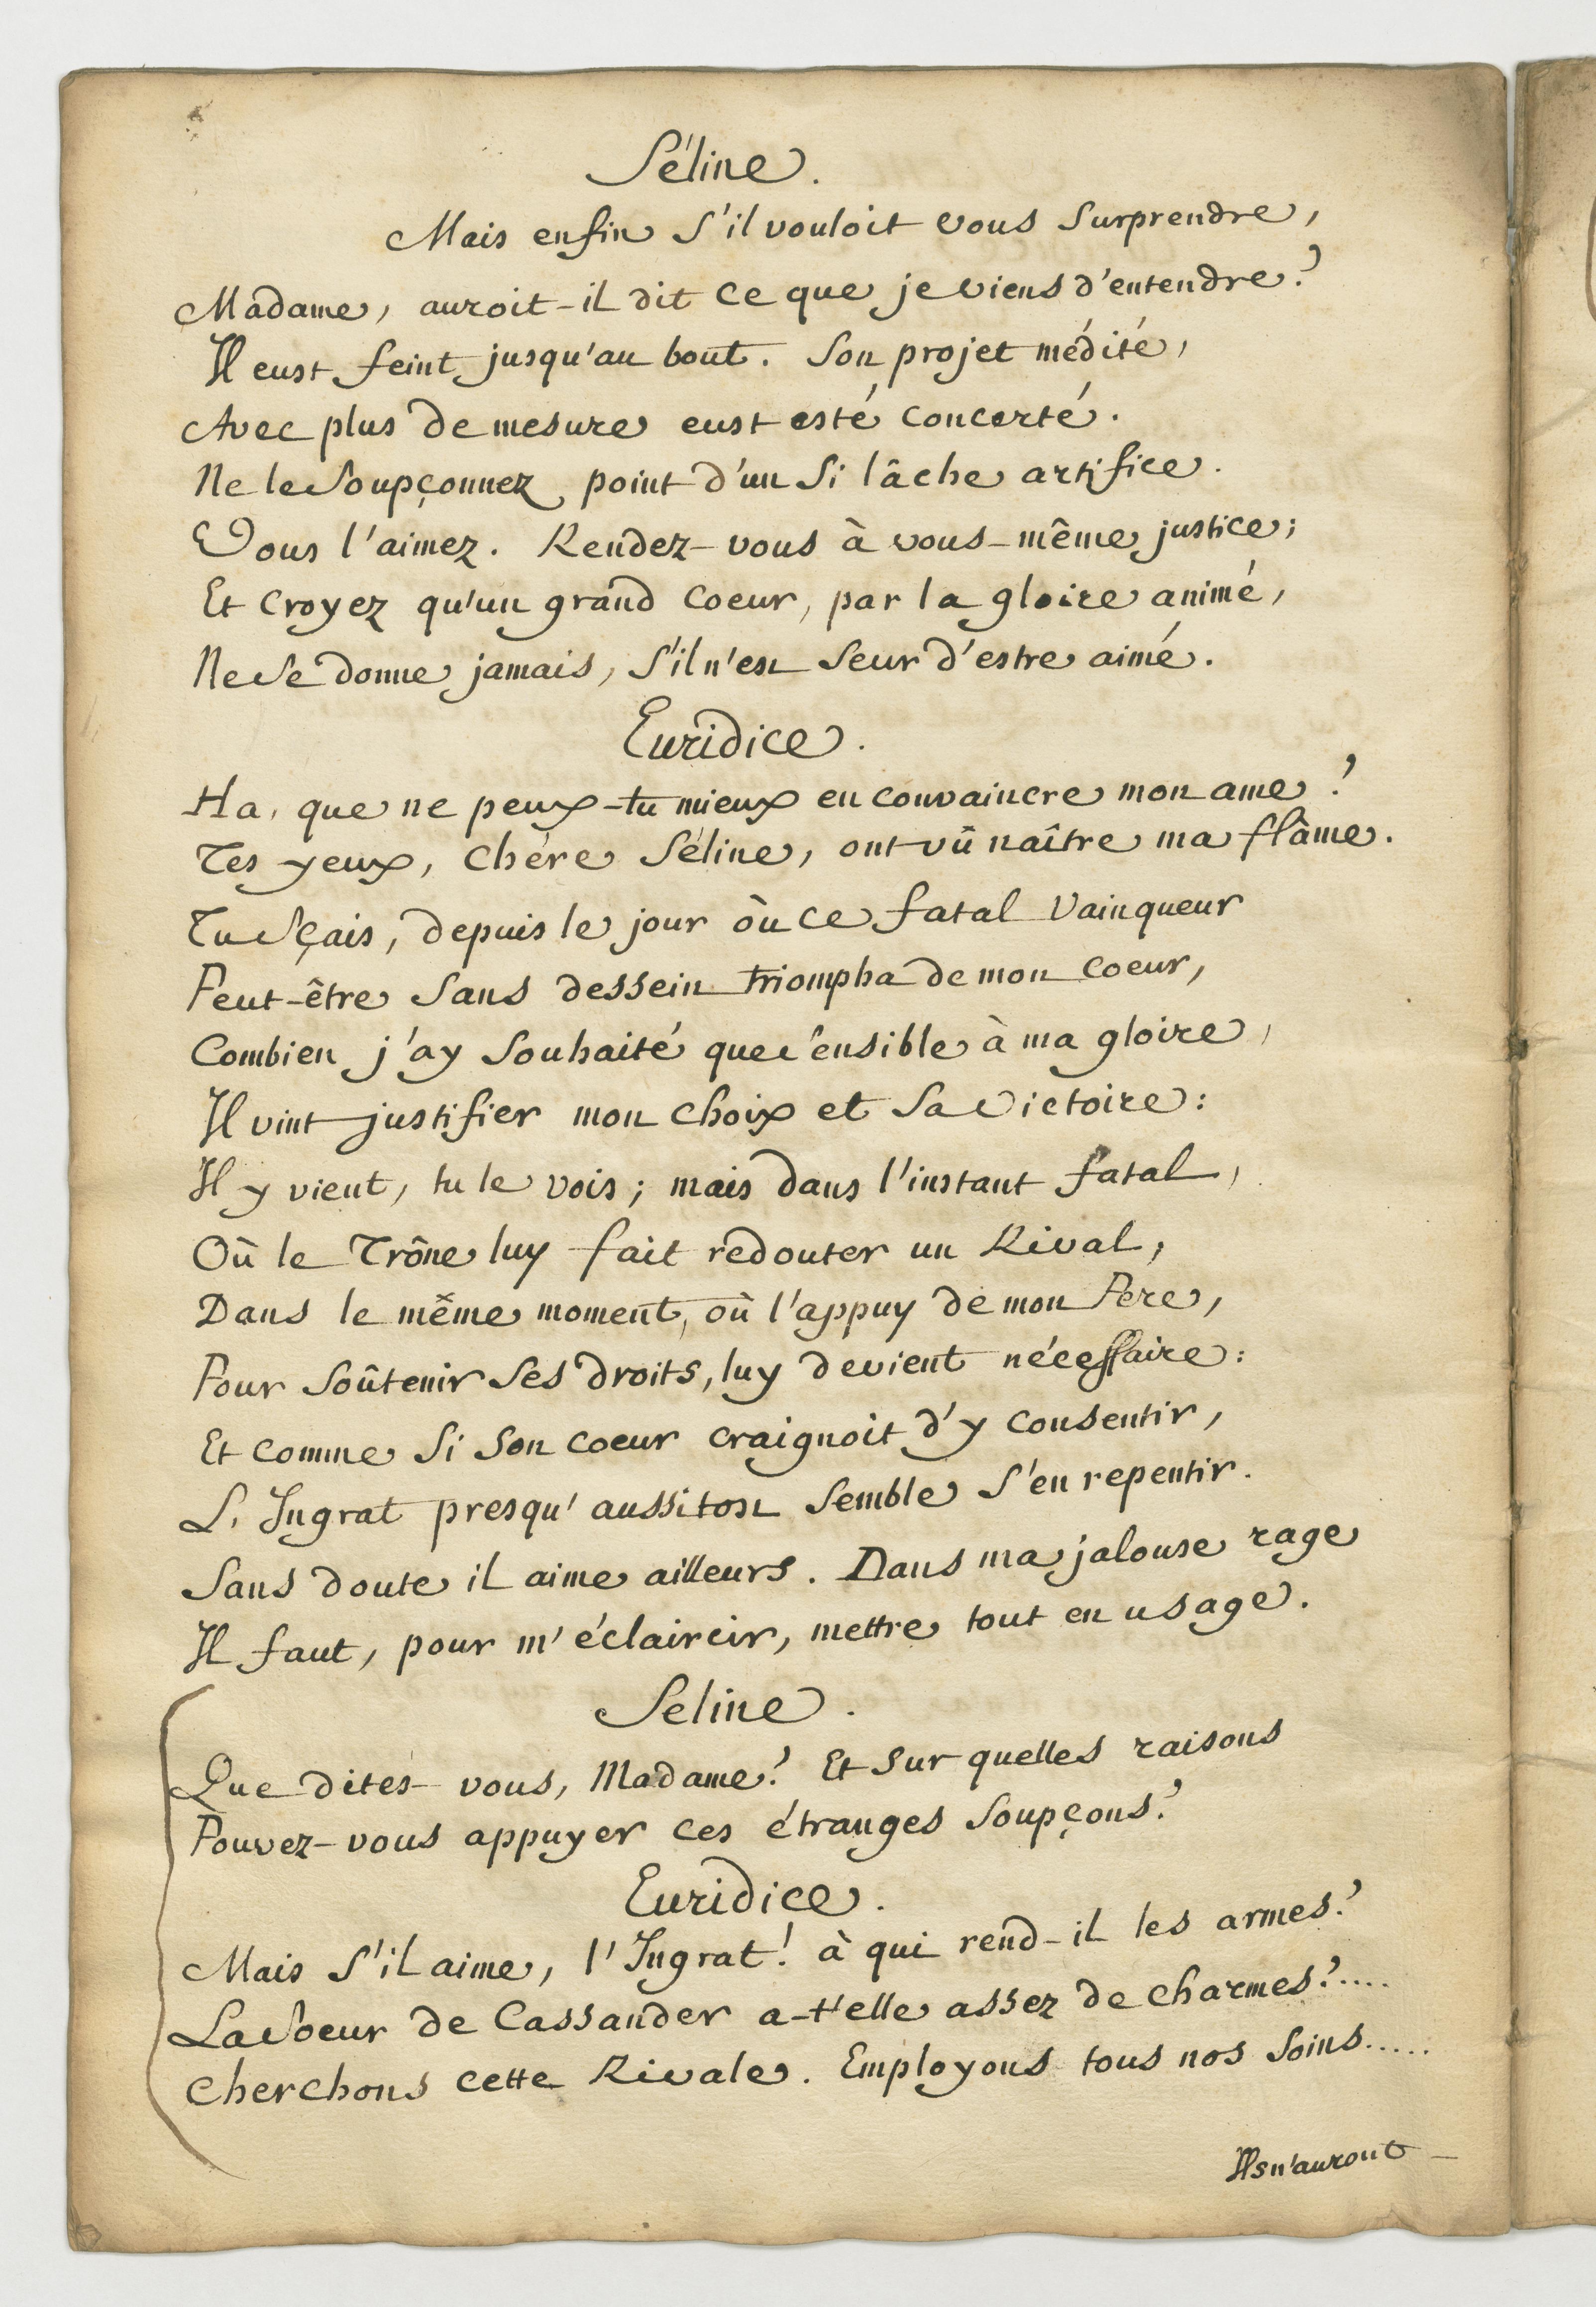 Séline.
Mais enfin s'il vouloit vous surprendre,
Madame, auroit-il dit ce que je viens d'entendre?
Il eust feint jusqu'au bout. Son projet médité,
Avec plus de mesure eust esté concerté.
Ne le soupçonnez point d'un si lâche artifice.
Vous l'aimez. Rendez-vous à vous-même justice;
Et croyez qu'un grand coeur, par la gloire animé,
Ne se donne jamais, s'il n'est seur d'estre aimé.
Euridice.
Ha, que ne peux-tu mieux en convaincre mon ame?
Tes yeux, chére Séline, ont vû naître ma flâme.
Tu sçais, depuis le jour où ce fatal Vainqueur
Peut-être sans dessein triompha de mon coeur,
Combien j'ay souhaité que sensible à ma gloire,
Il vint justifier mon choix et sa victoire:
Il y vient, tu le vois; mais dans l'instant fatal,
Où le Trône luy fait redouter un Rival,
Dans le même moment, où l'appuy de mon Pere,
Pour soûtenir ses droits, luy devient nécessaire:
Et comme si son coeur craignoit d'y consentir,
L'Ingrat presqu'aussitost semble s'en repentir.
Sans doute il aime ailleurs. Dans ma jalouse rage
Il faut, pour m'éclaircir, mettre tout en usage.
Seline.
Que dites-vous, Madame? Et sur quelles raisons
Pouvez-vous appuyer ces étranges soupçons?
Euridice.
Mais s'il aime, l'Ingrat! à qui rend-il les armes?
La soeur de Cassander a-t'elle assez de charmes?....
Cherchons cette Rivale. Employons tous nos soins.....
Ils n'auront